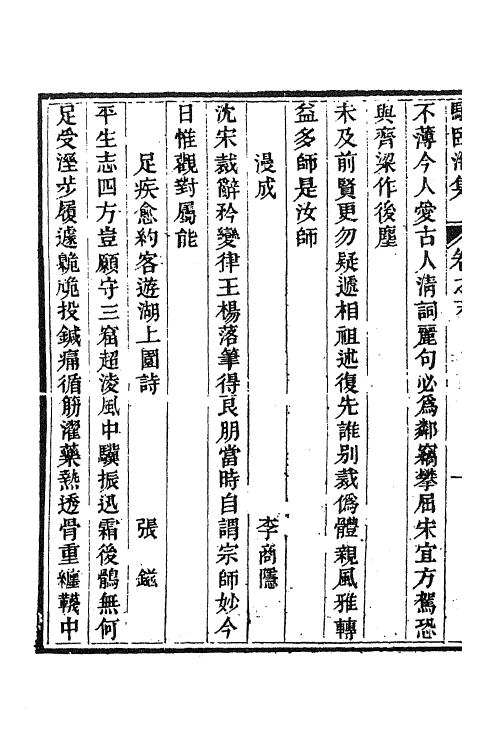 駱臨海集 卷之末 一
不薄今人愛古人清詞麗句必爲鄰竊攀屈宋宜方駕恐
與齊梁作後塵
未及前賢更勿疑遞相祖述復先誰别裁僞體親風雅轉
益多師是汝師
漫成 李商隱
沈宋裁辭矜變律王楊落筆得良朋當時自謂宗師妙今
日惟觀對屬能
足疾愈約客遊湖上園詩 張鎡
平生志四方豈願守三窟超淩風中驥振迅霜後鶻無何
足受溼步履遽臲卼投鍼痛循筋濯藥熱透骨重纏韈中